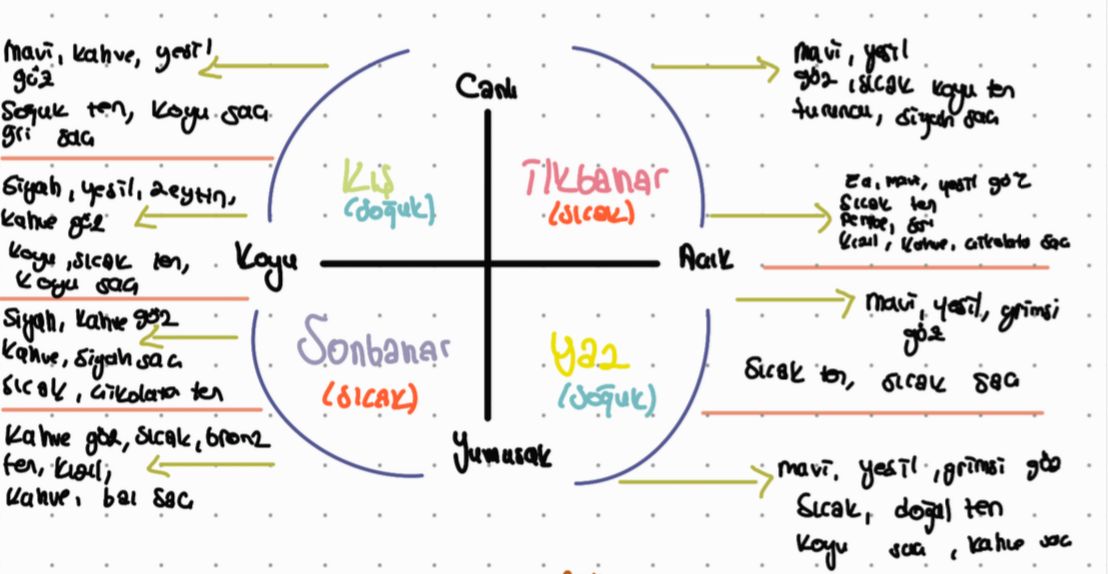 Mavi, kahve, yeşil
göz
Soğuk ten, koyu saç
gri saç
Siyah, yeşil, zeytin,
kahve göz
Koyu, sıcak ten,
Koyu saç
Siyah, kahve göz
Kahve, siyah saç
sıcak, çikolata ten
Kahve göz, sıcak, bronz
ten, kızıl,
kahve, bal saç
Canlı
Kış
(soğuk)
İlkbahar
(sıcak)
Koyu
Açık
Sonbahar
(sıcak)
Yaz
(soğuk)
Yumuşak
mavi, yeşil
göz, sıcak koyu ten
turuncu, siyah saç
Ela, mavi, yeşil göz
Sıcak ten
Pembe, sarı
Kızıl, kahve, çikolata saç
mavi, yeşil, grimsi
göz
Sıcak ten, sıcak saç
mavi, yeşil, grimsi göz
Sıcak, doğal ten
Koyu saç, kahve saç